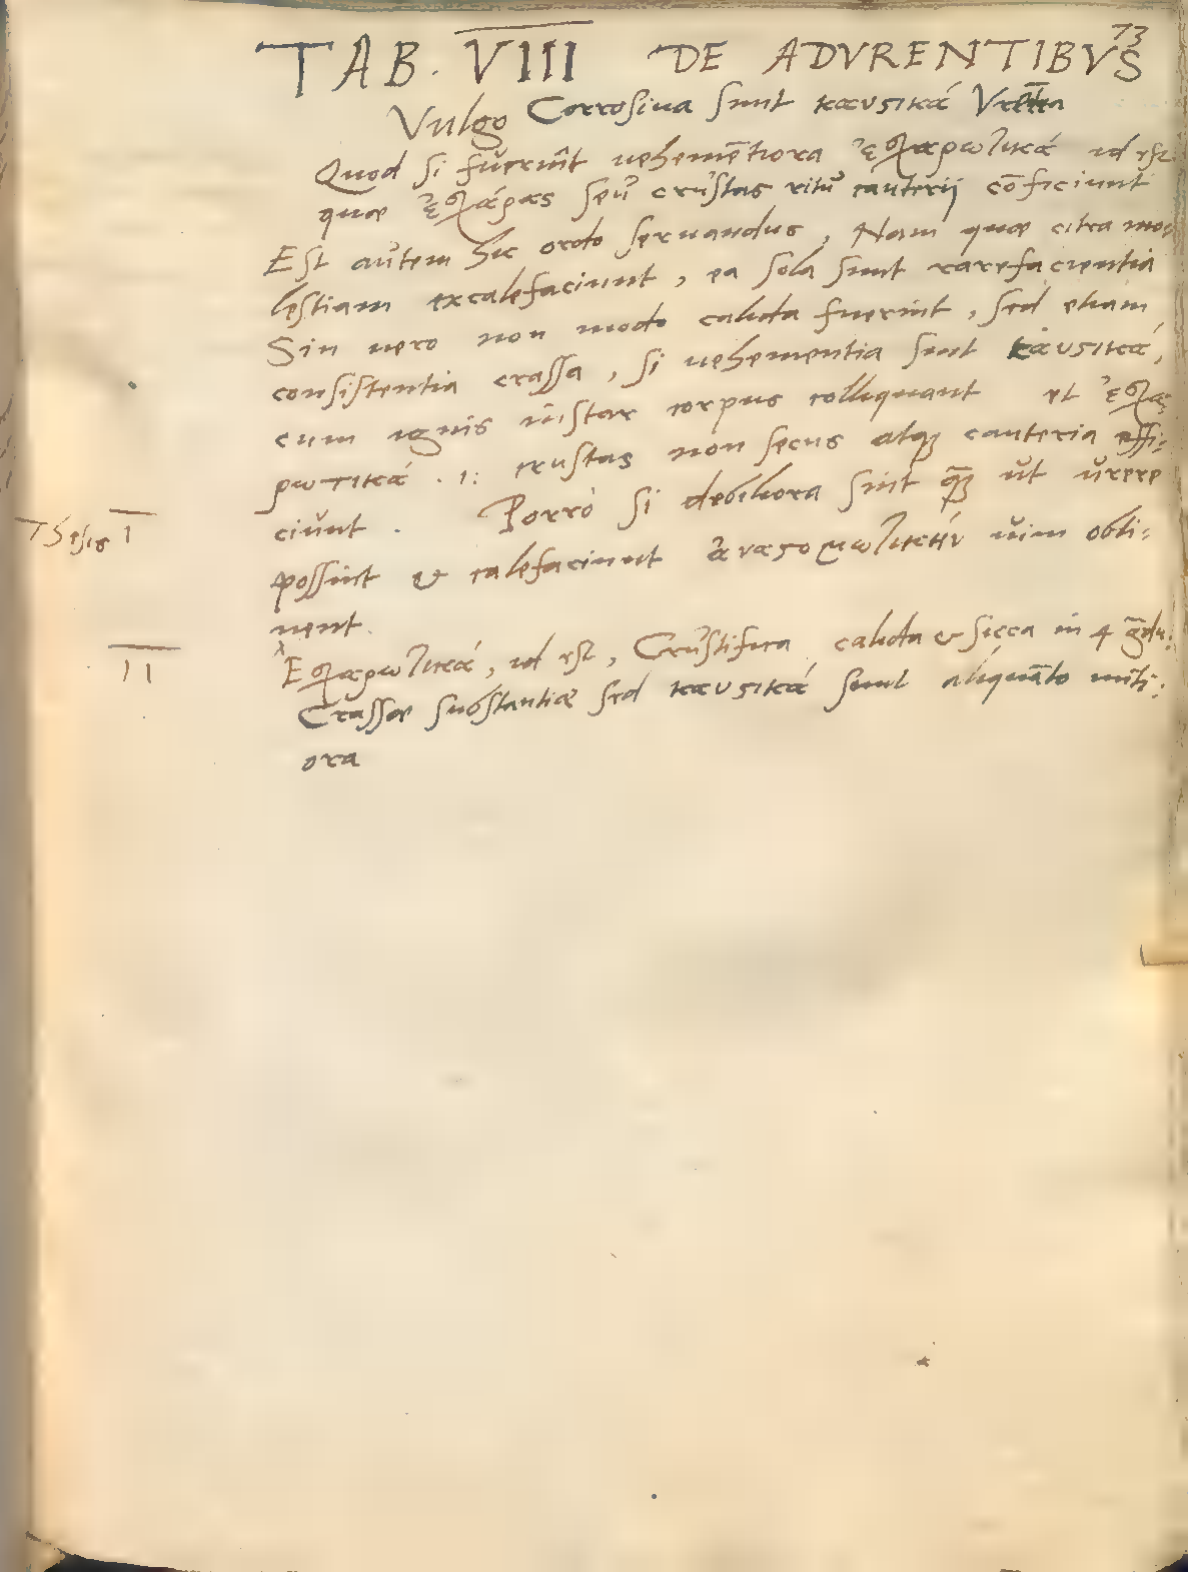 73
TAB. VIII DE ADVRENTIBVS
Vulgo Corrosiua sunt καυςικά
Quod si fuerint uehemētiora ἐσχαρωτικά id est
quæ ἐσχάρας seu crustas ritu cauterij cōficiunt
Est autem hic ordo seruandus, Nam quæ citra mo
lestiam excalefaciunt, ea sola sunt rarefacientia
Sin uero non modo calida fuerint, sed etiam
consistentia crassa, si uehementia sunt καυςικά,
cum ignis instar corpus colliquant et ἐσχα
ρωτικά .i: crustas non secus atq; cauteria effi:
ciunt. Porrò si debiliora sint q̄ꝫ ut urere
Thesis I
possint & calefaciunt ἀναςομωτικήν uim obti:
nent.
II
Ἐσχαρωτικά, id est, Crustifica calida & sicca in 4 g̅du:
Crassæ substantiæ sed καυςικά sunt aliquāto miti:
ora